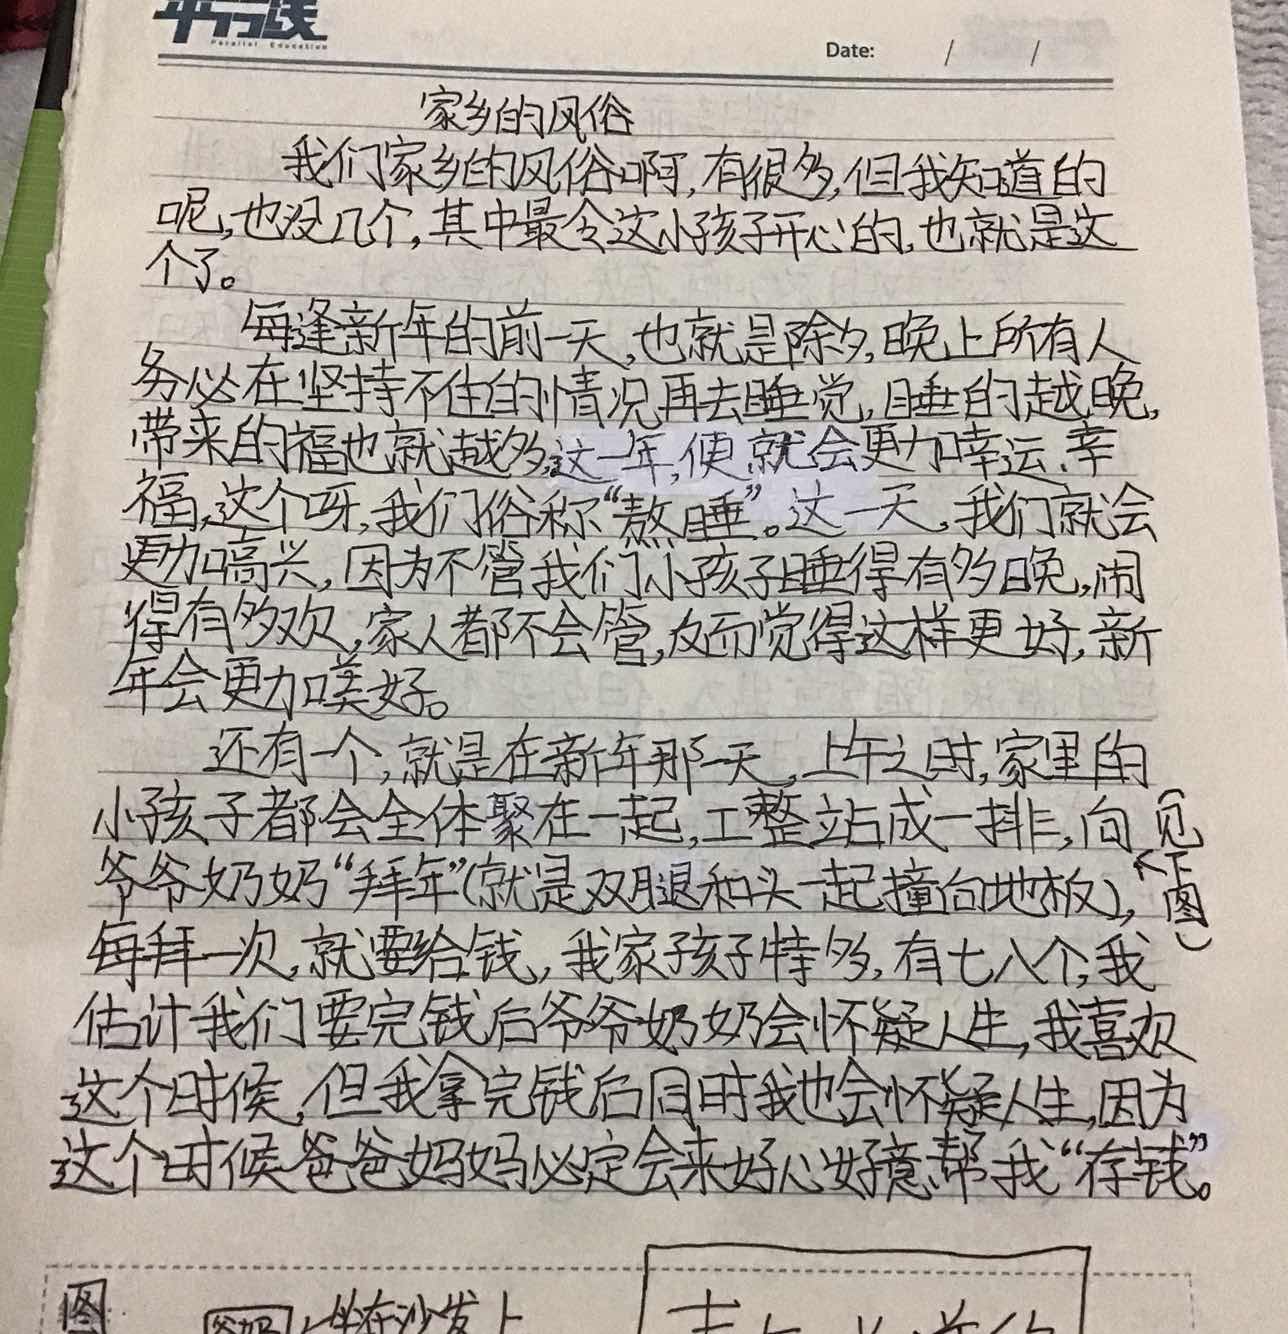 平行线
Parallel Education
Date: / /
家乡的风俗
我们家乡的风俗啊,有很多,但我知道的
呢,也没几个,其中最令这小孩子开心的,也就是这
个了。
每逢新年的前一天,也就是除夕,晚上所有人
务必在坚持不住的情况再去睡觉,睡的越晚,
带来的福也就越多,这一年,便就会更加幸运、幸
福,这个呀,我们俗称“熬睡”。这一天,我们就会
更加高兴,因为不管我们小孩子睡得有多晚,闹
得有多欢,家人都不会管,反而觉得这样更好,新
年会更加美好。
还有一个,就是在新年那一天,上午之时,家里的
小孩子都会全体聚在一起,工整站成一排,向
爷爷奶奶“拜年”(就是双腿和头一起撞向地板),
(见下图)
每拜一次,就要给钱,我家孩子特多,有七八个,我
估计我们要完钱后爷爷奶奶会怀疑人生,我喜欢
这个时候,但我拿完钱后同时我也会怀疑人生,因为
这个时候爸爸妈妈必定会来好心好意帮我“存钱”。
图
爷奶 坐在沙发上